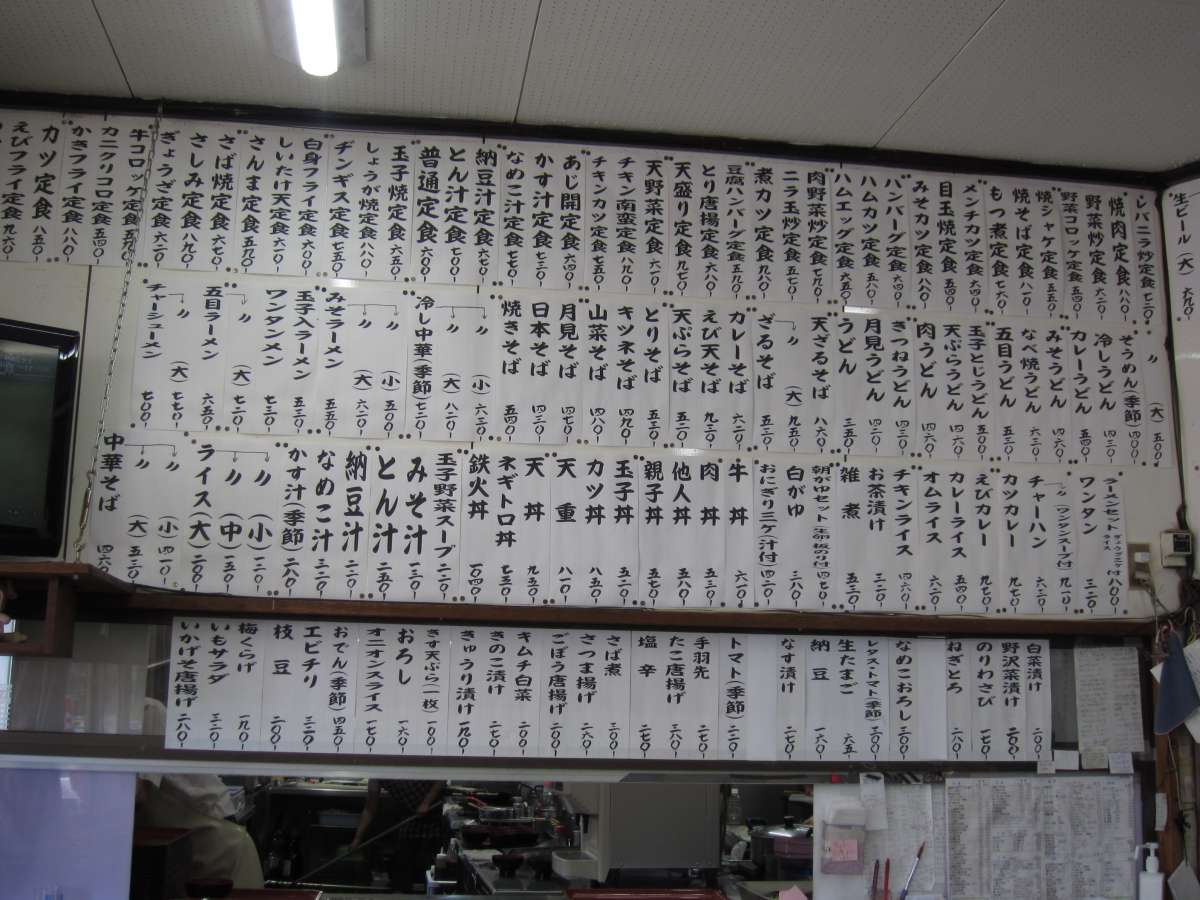 生ビール(大) 六九〇-
レバニラ炒定食 七二〇-
焼肉定食 八八〇-
野菜炒定食 六二〇-
野菜コロッケ定食 五四〇-
焼シャケ定食 五五〇-
焼そば定食 八一〇-
もつ煮定食 七六〇-
メンチカツ定食 六四〇-
目玉焼定食 五三〇-
みそカツ定食 九二〇-
ハンバーグ定食 六四〇-
ハムカツ定食 五八〇-
ハムエッグ定食 六五〇-
肉野菜炒定食 七九〇-
ニラ玉炒定食 五七〇-
煮カツ定食 九八〇-
豆腐ハンバーグ定食 五九〇-
とり唐揚定食 六八〇-
天盛り定食 九七〇-
天野菜定食 六二〇-
チキン南蛮定食 八九〇-
チキンカツ定食 七五〇-
あじ開定食 六四〇-
かす汁定食 七三〇-
なめこ汁定食 七七〇-
納豆汁定食 六七〇-
とん汁定食 七〇〇-
普通定食 六〇〇-
玉子焼定食 六五〇-
しょうが焼定食 八八〇-
ヂンギス定食 七五〇-
白身フライ定食 六〇〇-
しいたけ天定食 六〇〇-
さんま定食 五九〇-
さば焼定食 六七〇-
さしみ定食 八九〇-
ぎょうざ定食 六二〇-
牛コロッケ定食 五九〇-
カニクリコロ定食 五四〇-
かきフライ定食 八八〇-
カツ定食 八五〇-
えびフライ定食 九六〇-
〃 (大) 五〇〇-
そうめん(季節) 四〇〇-
冷しうどん 四三〇-
カレーうどん 五四〇-
みそうどん 四六〇-
なべ焼うどん 六三〇-
五目うどん 五三〇-
玉子とじうどん 五〇〇-
天ぷらうどん 四六〇-
肉うどん 四六〇-
きつねうどん 四三〇-
月見うどん 四二〇-
うどん 三五〇-
天ざるそば 八六〇-
〃 (大) 九五〇-
ざるそば 五三〇-
カレーそば 六二〇-
えび天そば 九三〇-
天ぷらそば 五二〇-
とりそば 五三〇-
キツネそば 四九〇-
山菜そば 四八〇-
月見そば 四七〇-
日本そば 四三〇-
焼きそば 五四〇-
〃 (小) 六三〇-
〃 (大) 八二〇-
冷し中華(季節) 七二〇-
〃 (小) 五〇〇-
〃 (大) 六二〇-
みそラーメン 五五〇-
玉子入ラーメン 五三〇-
ワンタンメン 七三〇-
〃 (大) 七二〇-
五目ラーメン 六五〇-
〃 (大) 七七〇-
チャーシューメン 七〇〇-
ラーメンセット ギョウザライス付 八〇〇-
ワンタン 三二〇-
〃 (ワンタンスープ付) 九一〇-
チャーハン 六三〇-
カツカレー 九七〇-
えびカレー 九七〇-
カレーライス 五四〇-
オムライス 六二〇-
チキンライス 四六〇-
お茶漬け 三二〇-
雑煮 五三〇-
朝がゆセット(生卵・板のり付) 四七〇-
白がゆ 三八〇-
おにぎり二ケ(汁付) 四二〇-
牛丼 六二〇-
肉丼 五三〇-
他人丼 五八〇-
親子丼 五七〇-
玉子丼 五二〇-
カツ丼 八五〇-
天重 八一〇-
天丼 九五〇-
ネギトロ丼 七三〇-
鉄火丼 一〇四〇-
玉子野菜スープ 二二〇-
みそ汁 一三〇-
とん汁 二五〇-
納豆汁 二二〇-
なめこ汁 三二〇-
かす汁(季節) 二八〇-
〃 (小) 一二〇-
〃 (中) 一五〇-
ライス大 二〇〇-
〃 (小) 四一〇-
〃 (大) 五三〇-
中華そば 四六〇-
白菜漬け 二〇〇-
野沢菜漬け 二〇〇-
のりわさび 一七〇-
ねぎとろ 二八〇-
なめこおろし 三〇〇-
レタス・トマト(季節) 三〇〇-
生たまご 六五-
納豆 一六〇-
なす漬け 二七〇-
トマト(季節) 二二〇-
手羽先 二七〇-
たこ唐揚げ 三六〇-
塩辛 二七〇-
さば煮 三〇〇-
さつま揚げ 二〇〇-
ごぼう唐揚げ 二〇〇-
キムチ白菜 二〇〇-
きのこ漬け 二七〇-
きゅうり漬け 一九〇-
きす天ぷら(一枚) 一〇〇-
おろし 一六〇-
オニオンスライス 一七〇-
おでん(季節) 四五〇-
エビチリ 三二〇-
枝豆 二〇〇-
梅くらげ 一九〇-
いもサラダ 三二〇-
いかげそ唐揚げ 二八〇-